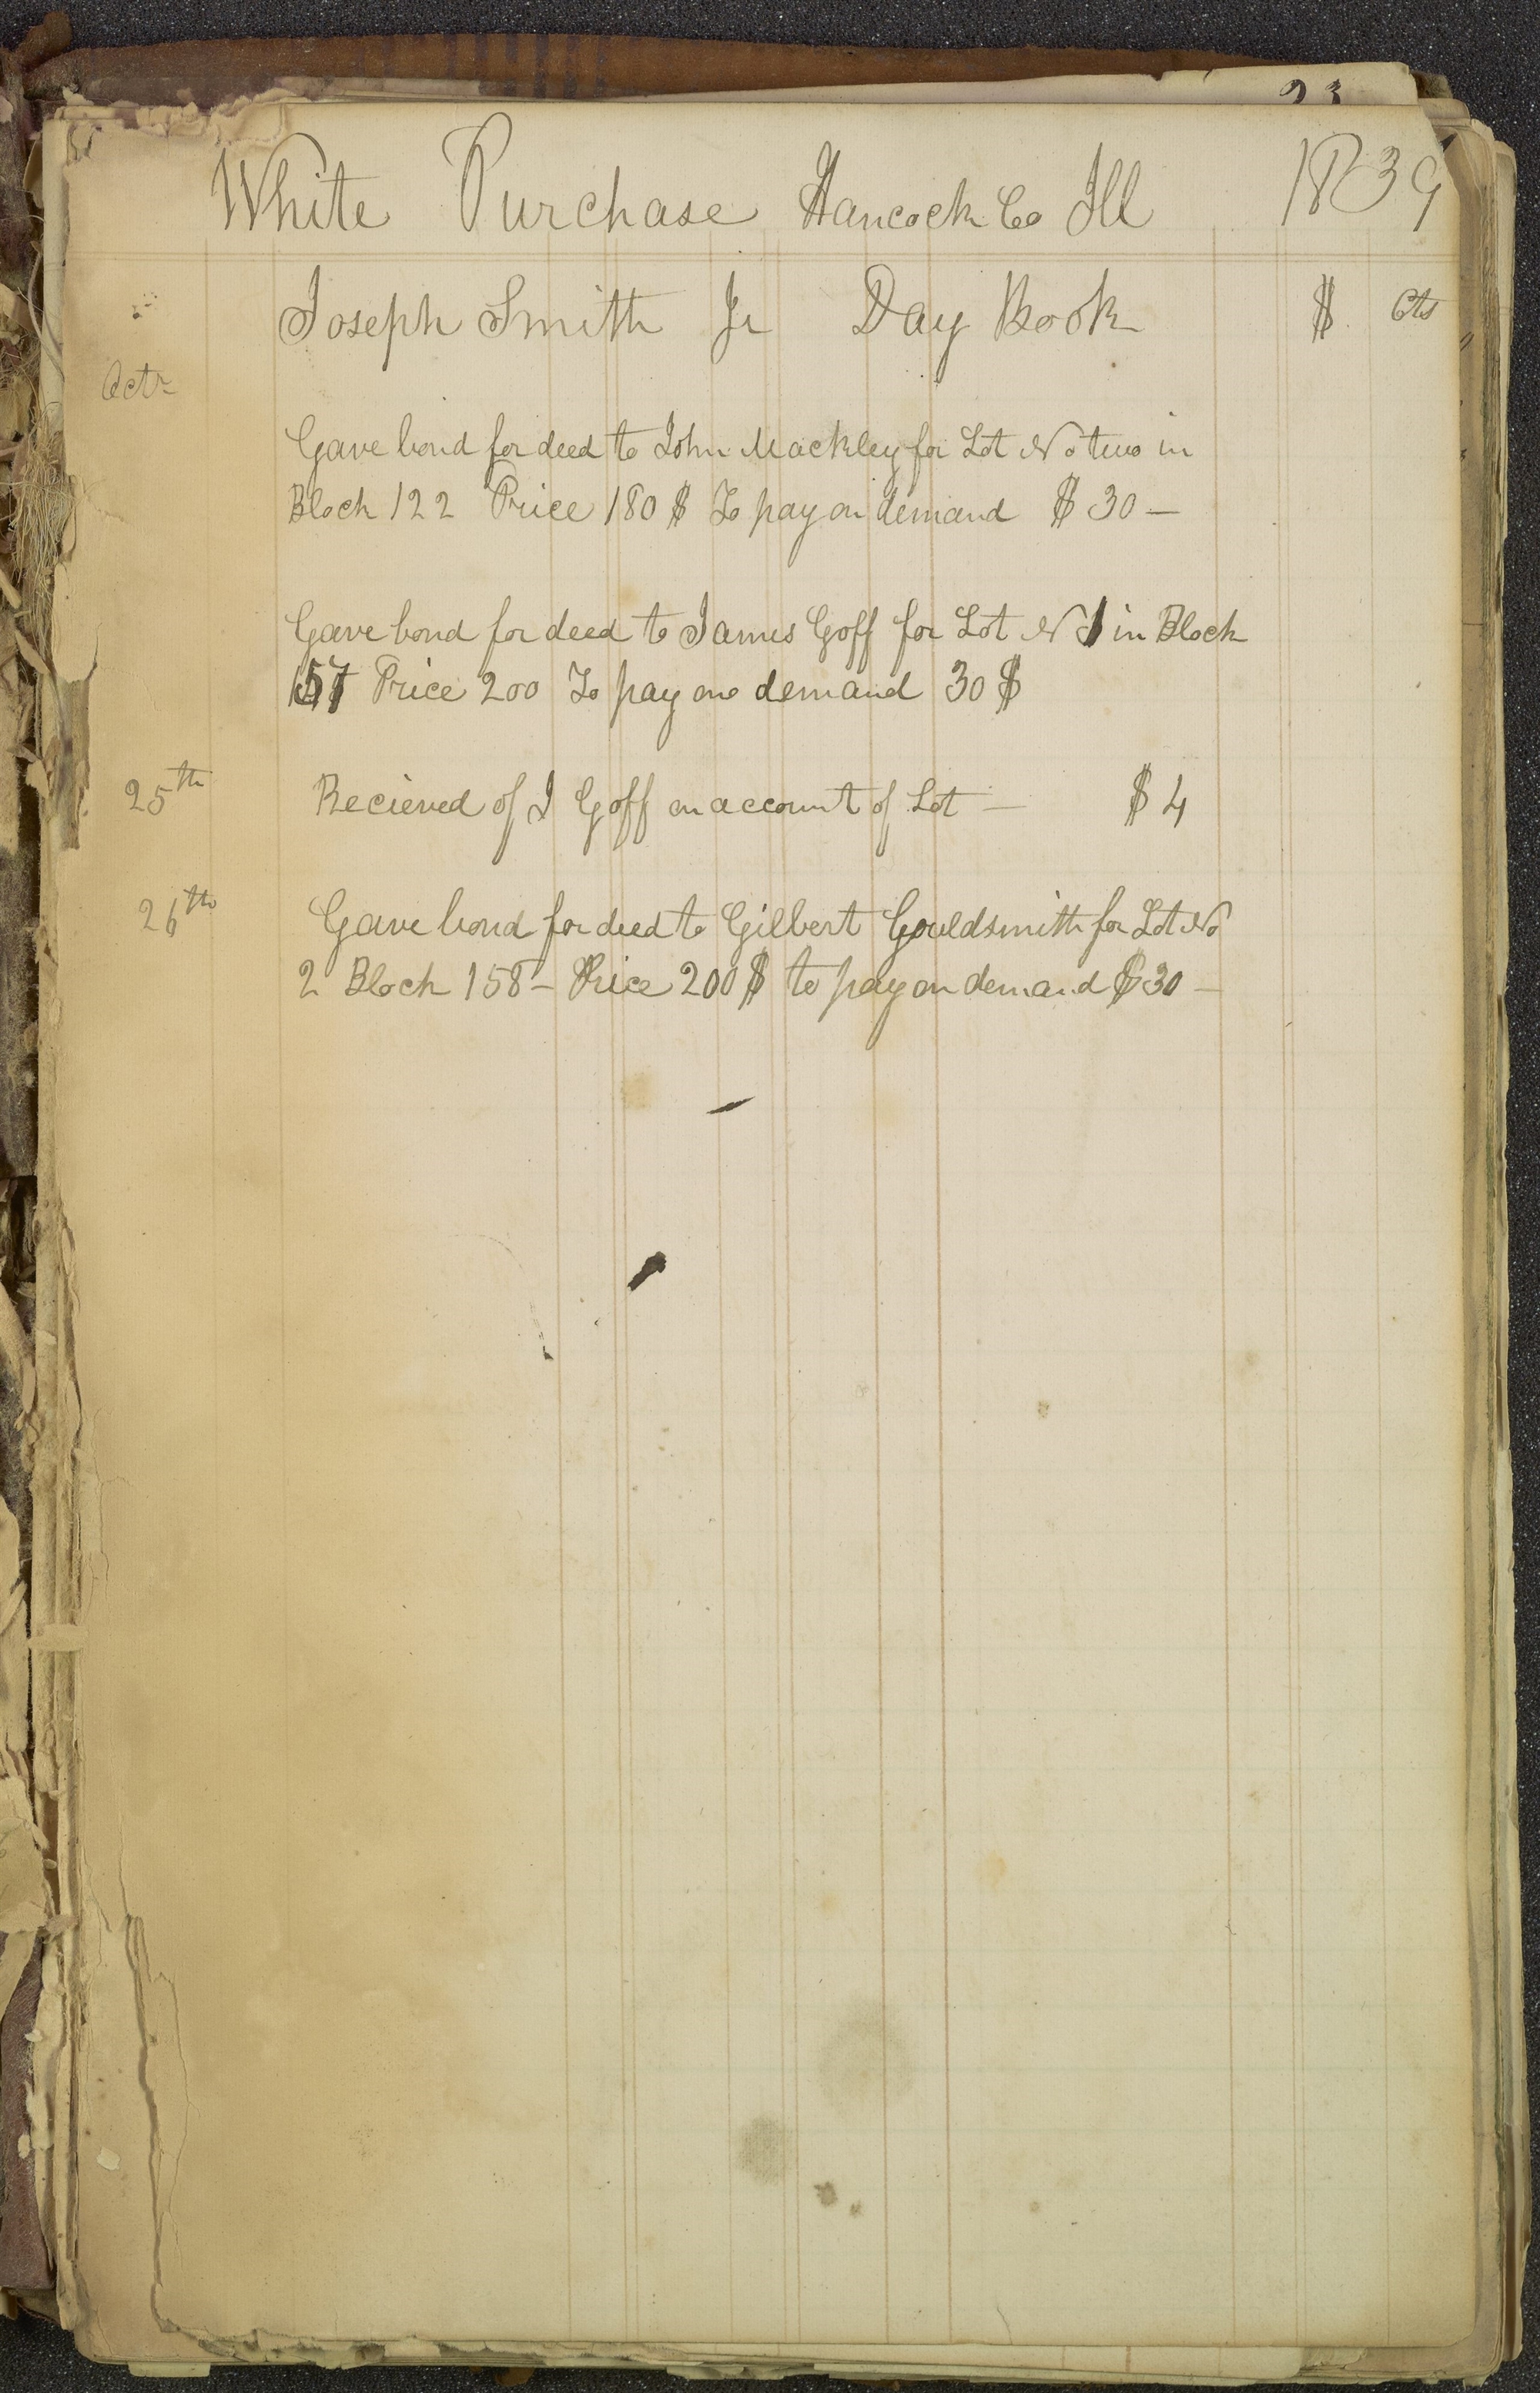 23
White Purchase Hancock Co Ill 1839
Joseph Smith Jr Day Book $ Cts
Octr
Gave bond for deed to John Mackley for Lot No two in
Block 122 Price 180 $ To pay on demand $ 30 —
Gave bond for deed to James Goff for Lot N 1 in Block
157 Price 200 To pay one demand 30 $
25th Recieved of J Goff on account of Lot — $ 4
26th Gave bond for deed to Gilbert Gouldsmith for Lot No
2 Block 158 – Price 200 $ to pay on demand $ 30 —